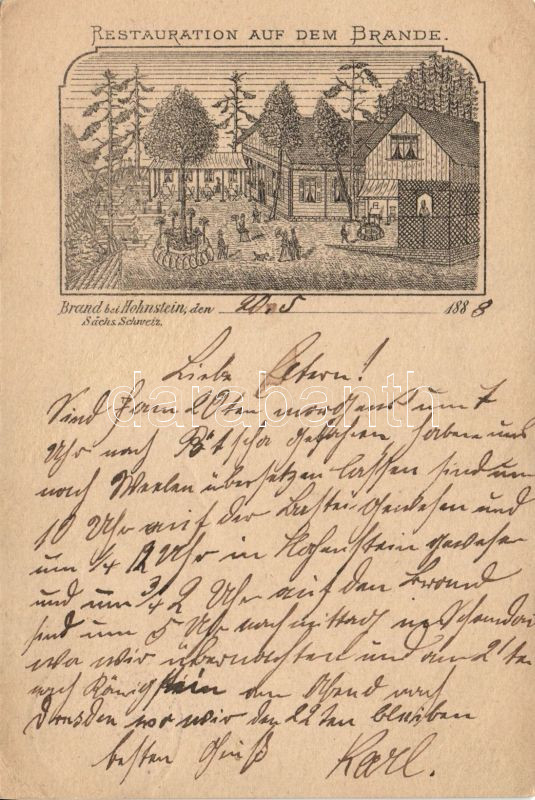 RESTAURATION AUF DEM BRANDE.
Brand bei Hohnstein, den 20. 5 1888
Sächs. Schweiz.
Liebe Eltern!
Sind am 20ten morgens um 7
Uhr nach Pötscha gefahren, haben uns
nach Wehlen übersetzen lassen sind um
10 Uhr auf der Bastei gewesen und
um 1/4 2 Uhr in Hohenstein gewesen
und um 3/4 2 Uhr auf den Brand
sind um 5 Uhr nachmittag in Schandau
wo wir übernachten und am 21ten
nach Königstein am Abend nach
Dresden wo wir den 22ten bleiben
besten Gruß Karl.
darabanth